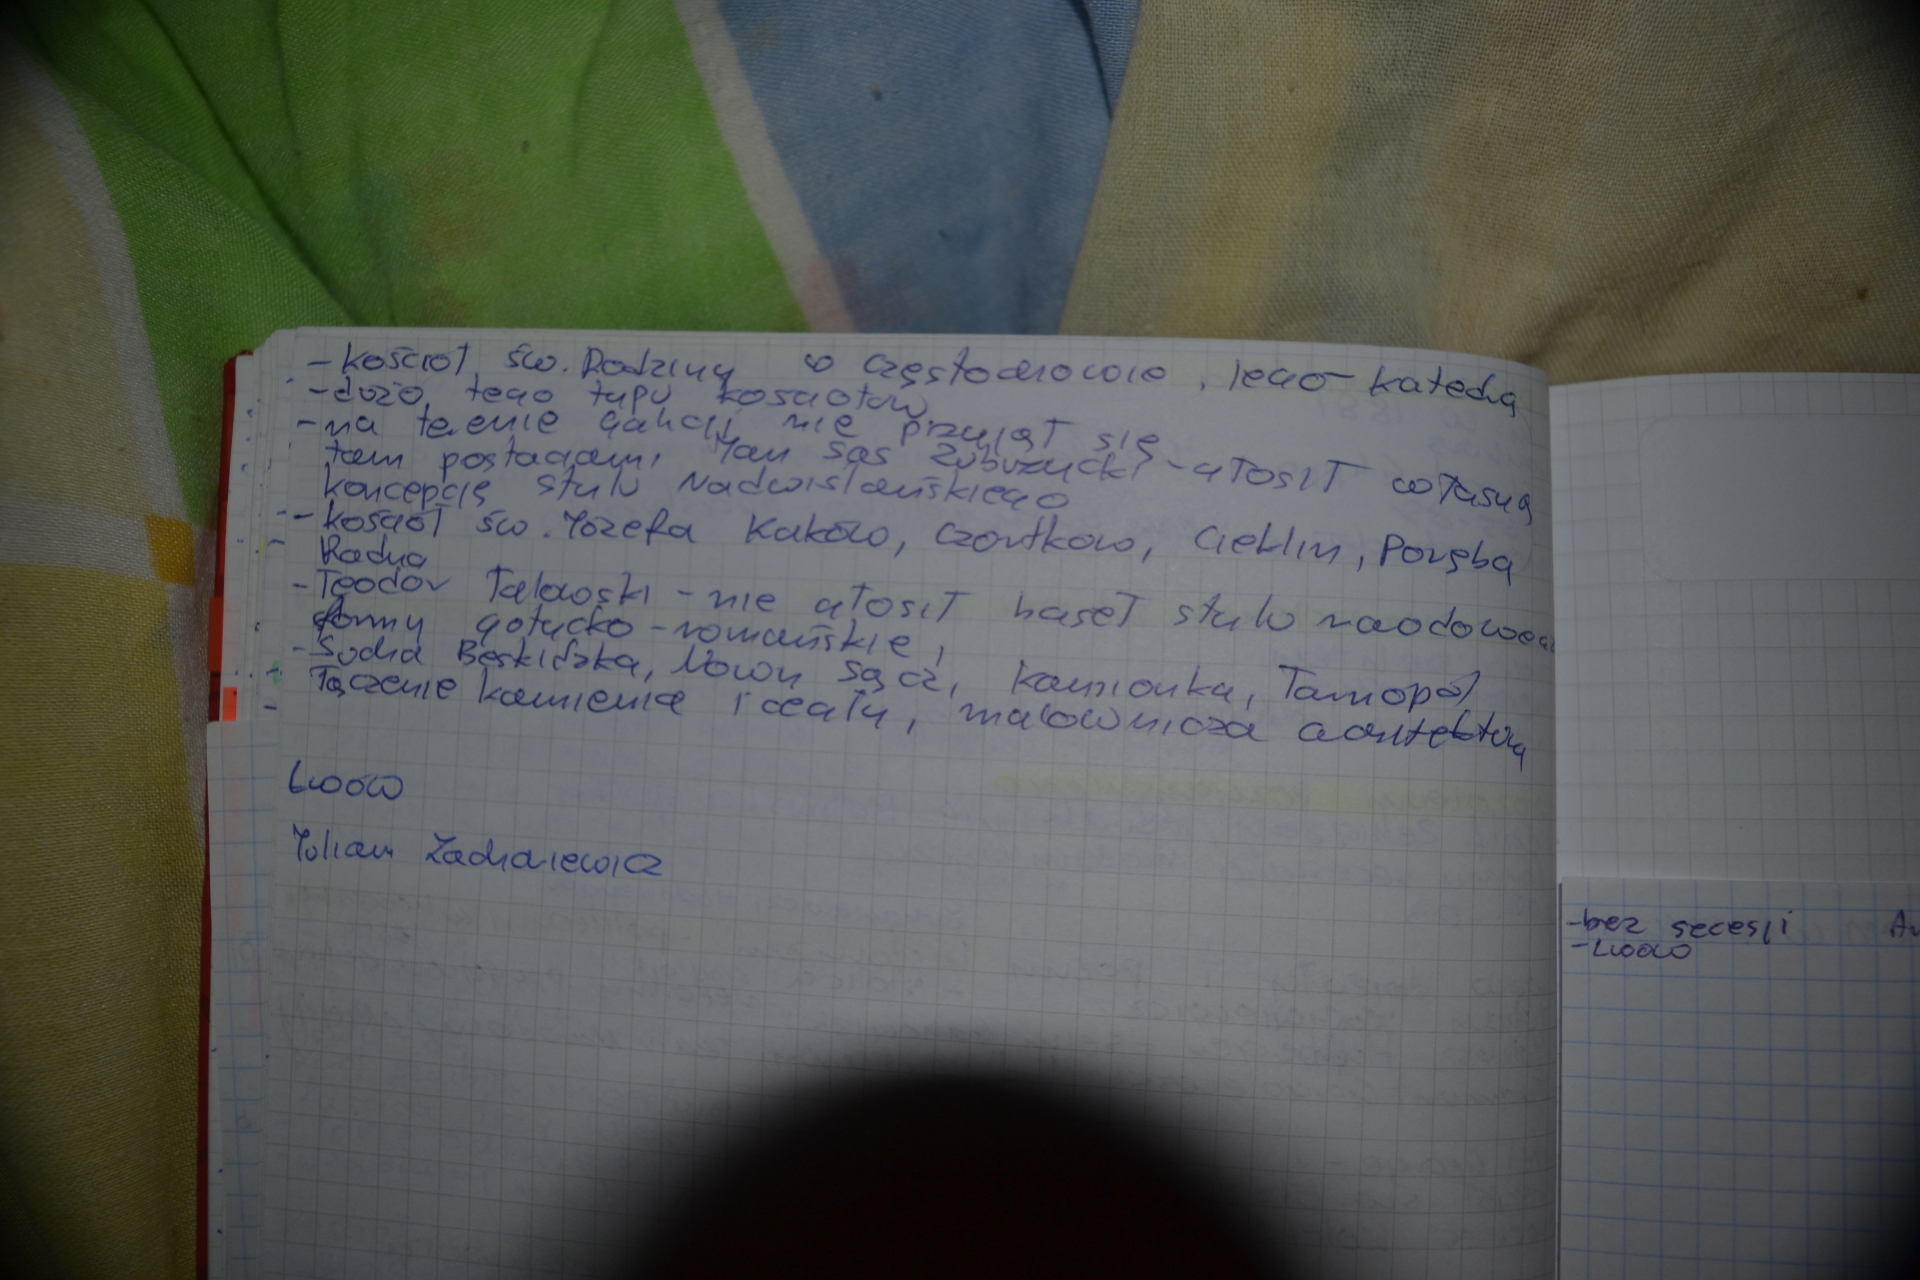 - kościół św. Rodziny w Częstochowie, teraz katedra
- dużo tego typu kościołów
- na terenie Galicji nie przyjął się
tam postaciami Jan Sas Zubrzycki - głosił własną
koncepcję stylu nadwiślańskiego
- kościół św. Józefa Kraków, Czortków, Cieklin, Poręba
Radna
- Teodor Talowski - nie głosił haseł stylu narodowego
formy gotycko-romańskie,
- Sucha Beskidzka, Nowy Sącz, Kamionka, Tarnopol
- łączenie kamienia i cegły, malownicza architektura
Lwów
Julian Zachariewicz
- bez secesji
- Lwów